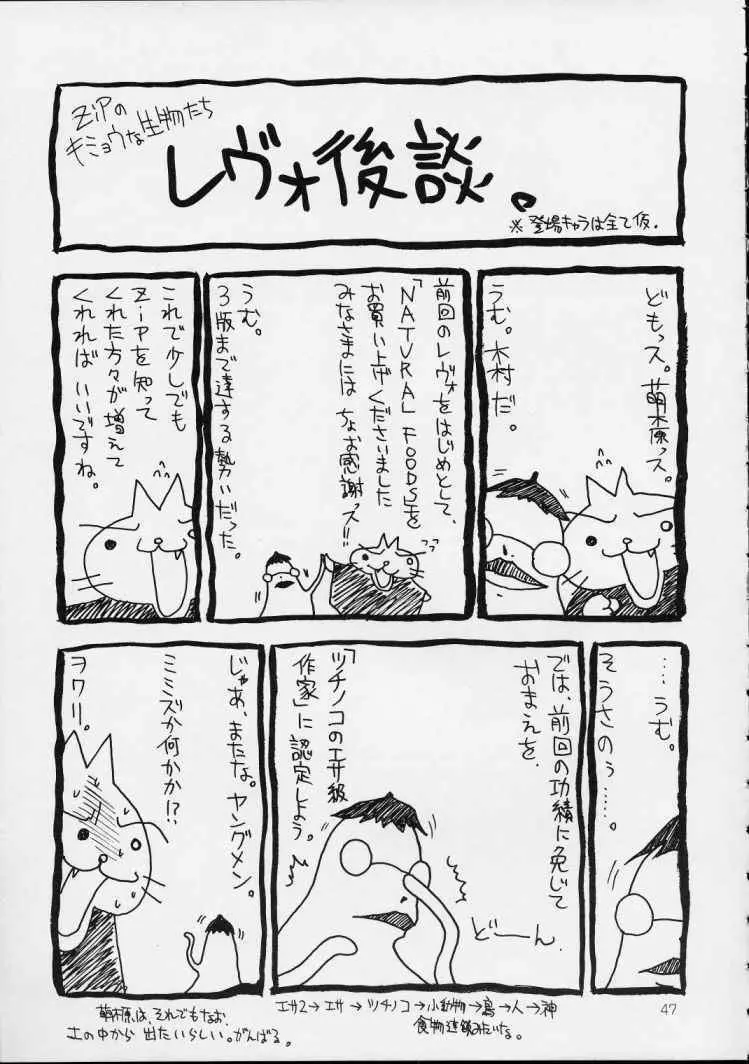 ZiPの
キミョウな生物たち
レヴォ後談。
※登場キャラは全て仮.
どもっス。萌木原っス。
うむ。木村だ。
前回のレヴォをはじめとして、
「NATURAL FOODS」を
お買い上げくださいました
みなさまには ちょお感謝っス!!
うむ。
3版まで達する勢いだった。
これで少しでも
ZiPを知って
くれた方々が増えて
くれれば いいですね。
……うむ。
そうさのぅ……。
では、前回の功績に免じて
おまえを、
「ツチノコのエサ級
作家」に認定しよう。
どーん.
じゃあ、またな。ヤングメン。
ミミズか何かか!?
ヲワリ。
エサ2→エサ→ツチノコ→小動物→鳥→人→神
食物連鎖みたいな。
萌木原は、それでもなお、
土の中から 出たいらしい。がんばる。
47